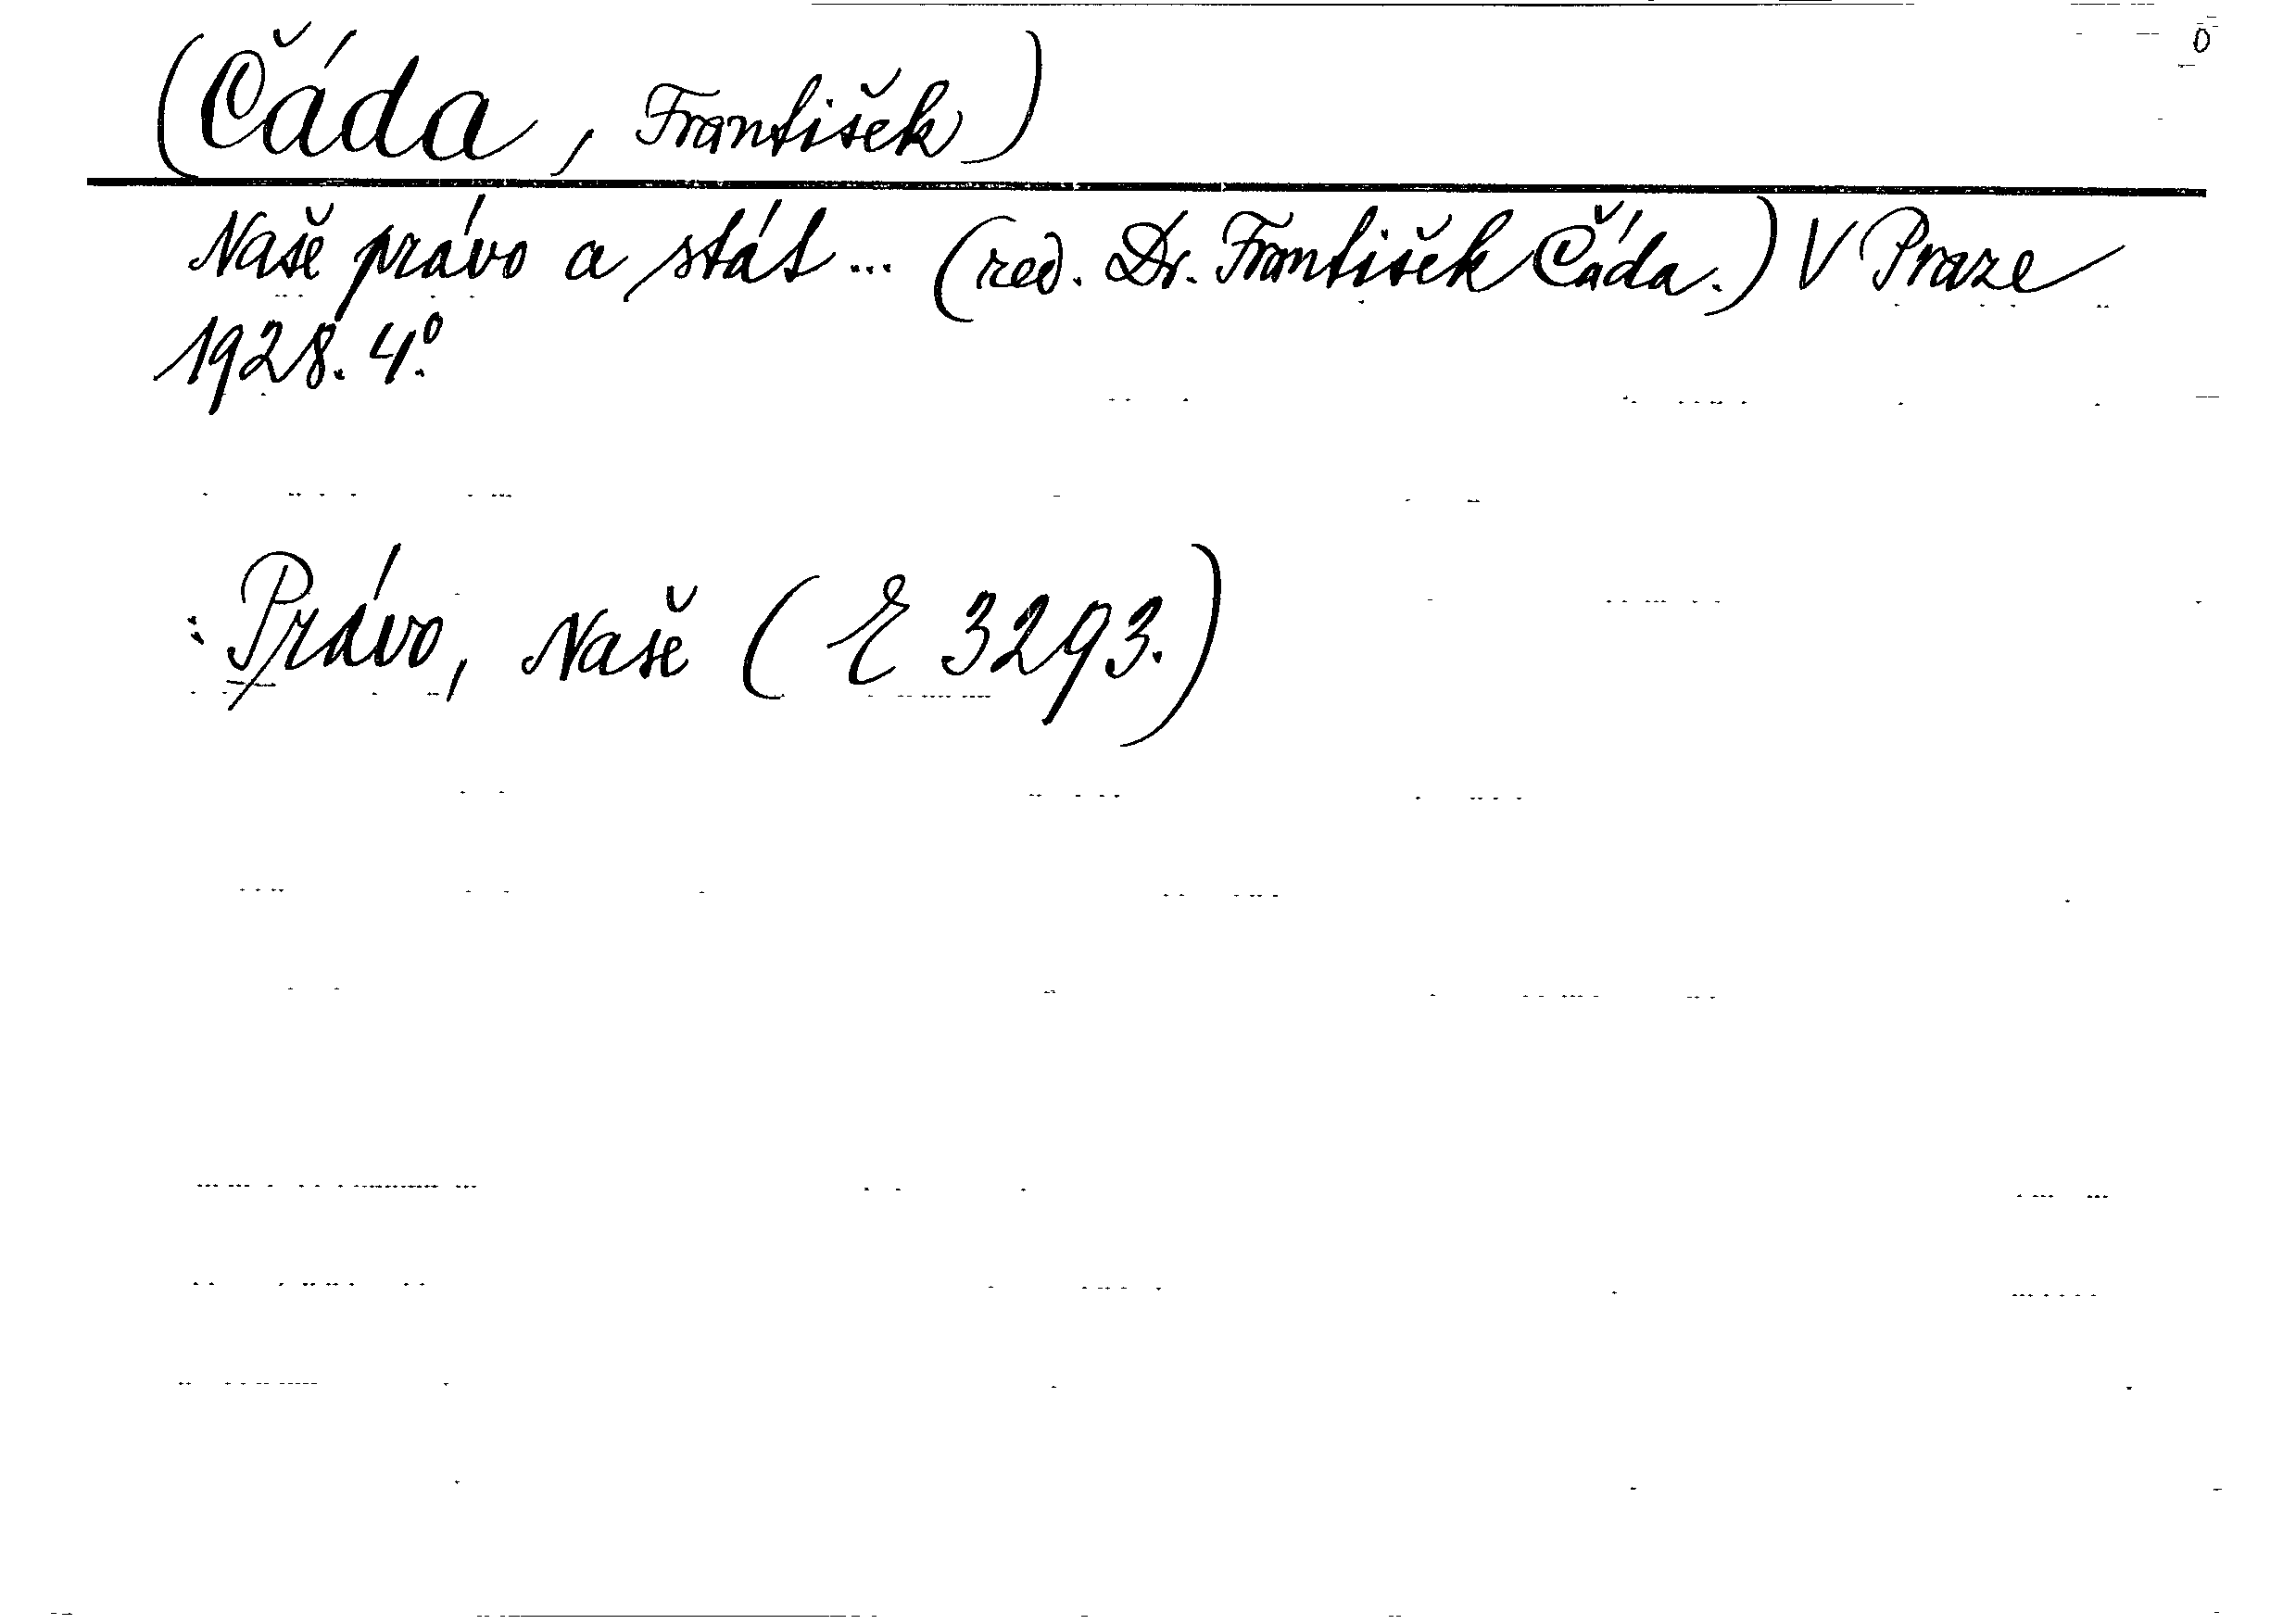 (Čáda, František)
Naše právo a stát... (red. Dr. František Čáda.) V Praze
1928. 4º.
: Právo, Naše ( E 3293.)